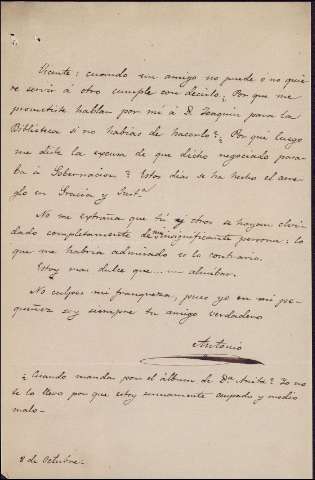 Vicente: cuando un amigo no puede o no quie-
re servir á otro cumple con decirlo ¿Por que me
prometiste hablar por mi á D. Joaquin para la
Biblioteca si no habias de hacerlo? ¿Por qué luego
me diste la excusa de que dicho negociado para-
ba á Gobernacion? Estos dias se ha hecho el arre-
glo en Gracia y Just.ª
No me extraña que tú y otros se hayan olvi-
dado completamente de mi insignificante persona: lo
que me habria admirado es lo contrario.
Estoy mas dulce que.... un almibar.
No culpes mi franqueza, pues yo en mi pe-
queñez soy siempre tu amigo verdadero
Antonio
¿Cuando mandas por el álbum de D.ª Anita? Yo no
te lo llevo por que estoy sumamente ocupado y medio
malo.-
8 de Octubre.